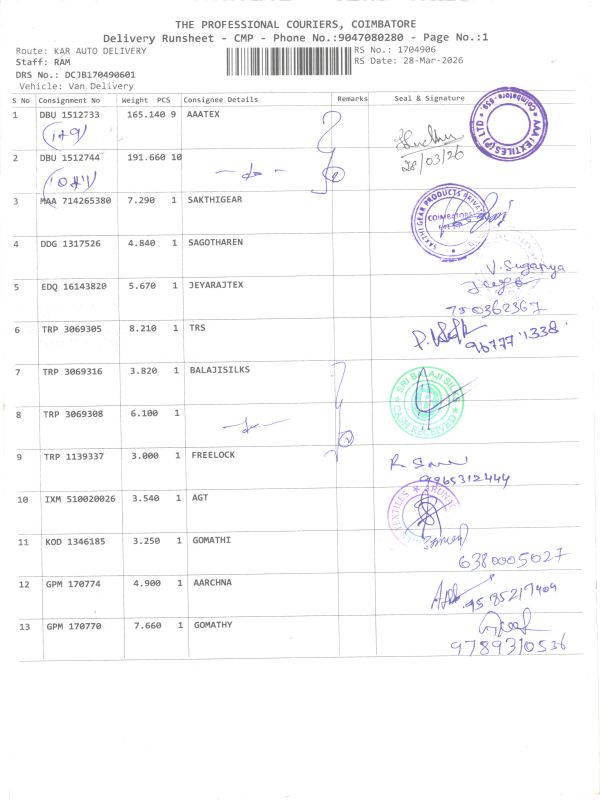 THE PROFESSIONAL COURIERS, COIMBATORE
Delivery Runsheet - CMP - Phone No.:9047080280 - Page No.:1
Route: KAR AUTO DELIVERY
RS No.: 1704906
Staff: RAM
RS Date: 28-Mar-2026
DRS No.: DCJB170490601
Vehicle: Van Delivery
S No Consignment No Weight PCS Consignee Details Remarks Seal & Signature
1 DBU 1512733 165.140 9 AAATEX
AAA TEXTILES (P) LTD
28/03/26
2 DBU 1512744 191.660 10
3 MAA 714265380 7.290 1 SAKTHIGEAR
SAKTHI GEAR PRODUCTS
COIMBATORE
4 DDG 1317526 4.840 1 SAGOTHAREN
V. Suganya
5 EDQ 16143820 5.670 1 JEYARAJTEX
6 TRP 3069305 8.210 1 TRS
96777 1338
7 TRP 3069316 3.820 1 BALAJISILKS
SRI BALAJI SILKS
8 TRP 3069308 6.100 1
9 TRP 1139337 3.000 1 FREELOCK
9965312444
10 IXM 510020026 3.540 1 AGT
TEXTILES
11 KOD 1346185 3.250 1 GOMATHI
6380005027
12 GPM 170774 4.900 1 AARCHNA
9585217404
13 GPM 170770 7.660 1 GOMATHY
9789310536